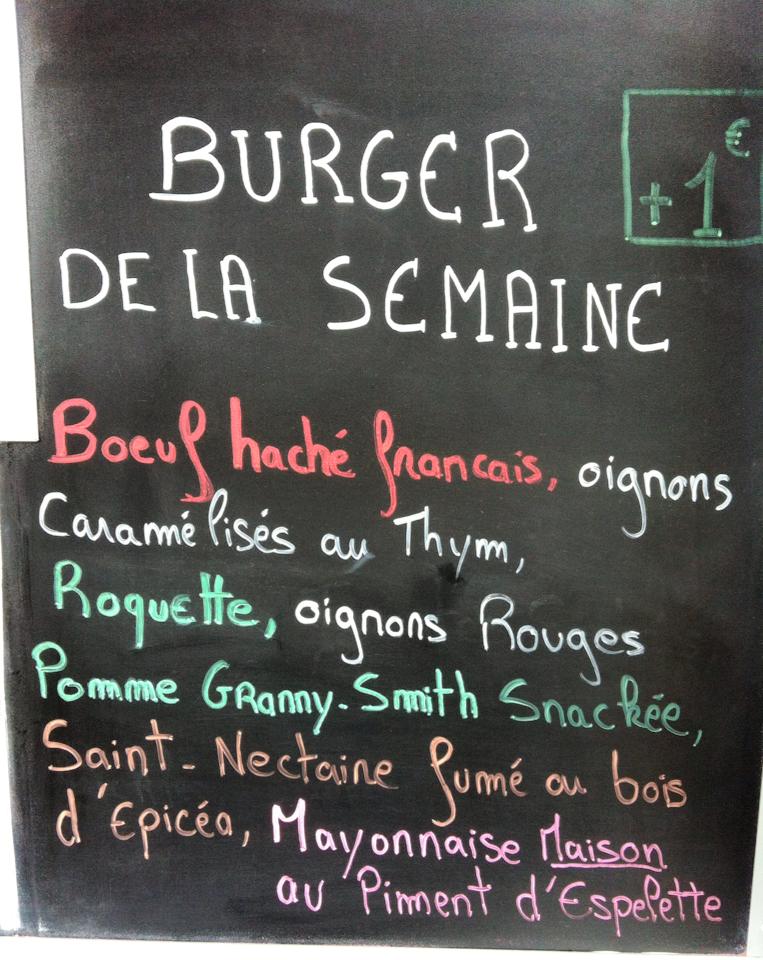 BURGER
+1€
DE LA SEMAINE
Boeuf haché francais, oignons
Caramélisés au Thym,
Roquette, oignons Rouges
Pomme Granny-Smith Snackée,
Saint-Nectaire fumé au bois
d'Epicéa, Mayonnaise Maison
au Piment d'Espelette